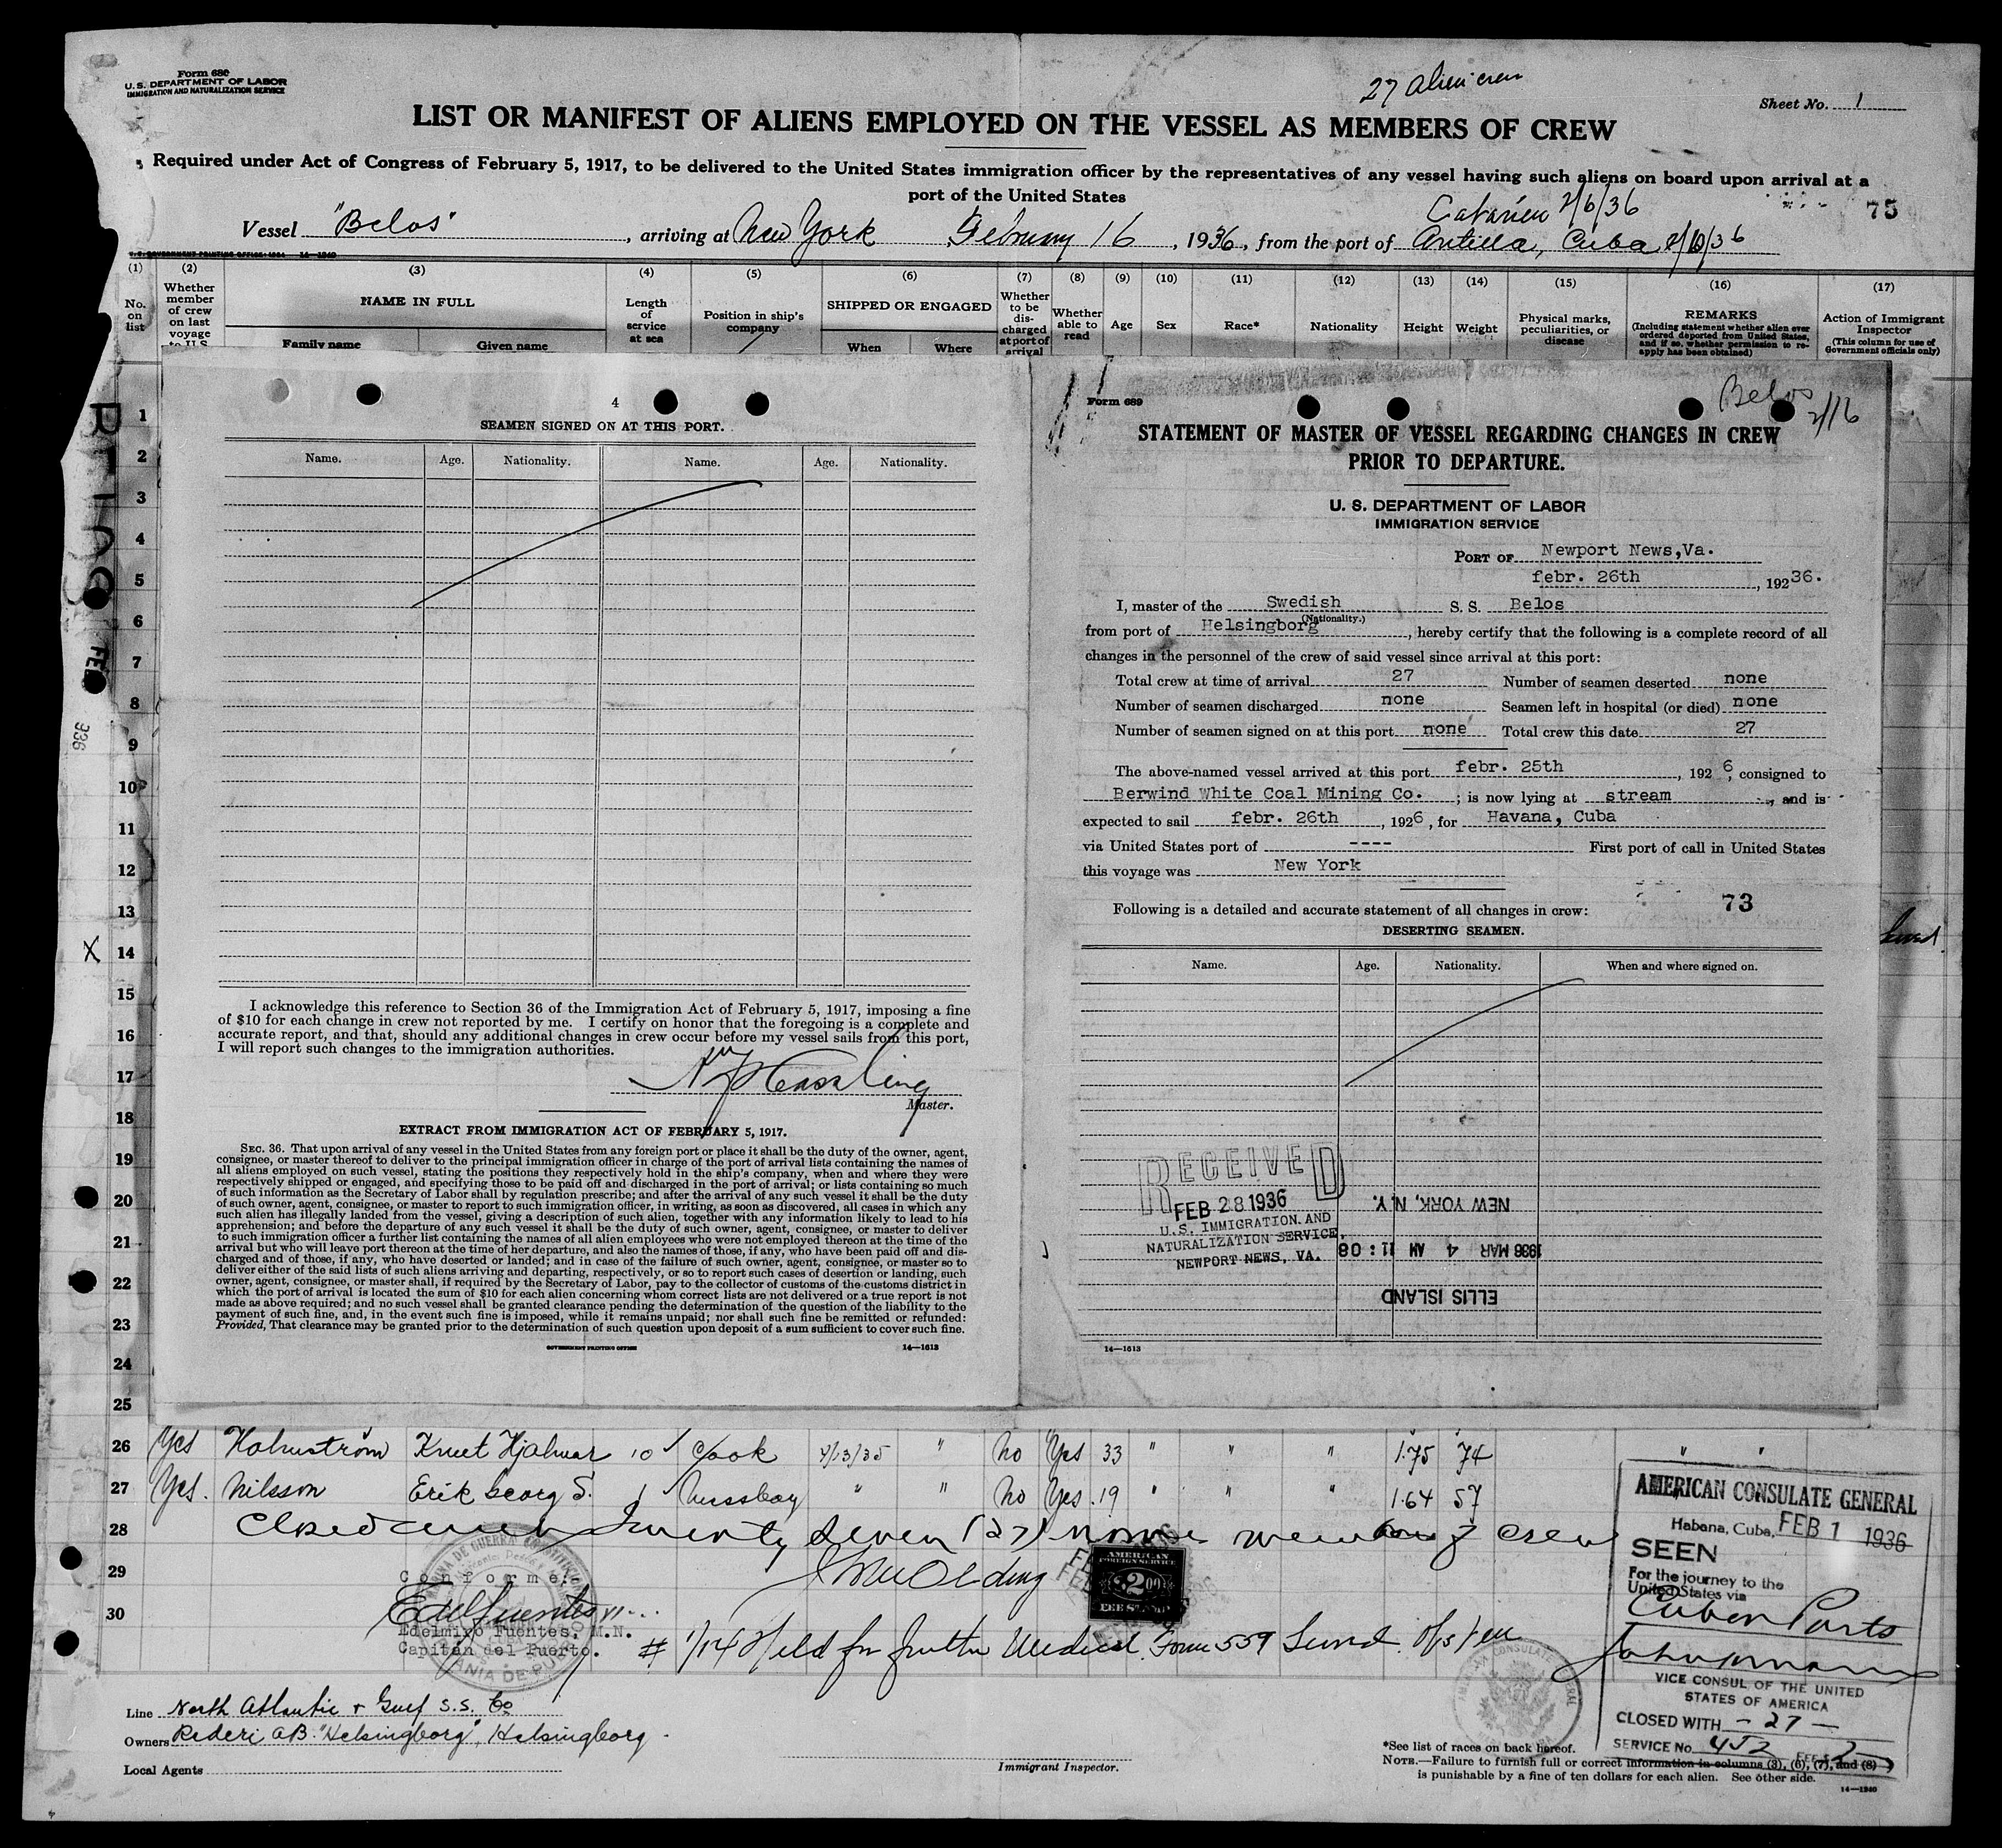 Form 680
U. S. DEPARTMENT OF LABOR
IMMIGRATION AND NATURALIZATION SERVICE
27 alien crew
Sheet No. 1
LIST OR MANIFEST OF ALIENS EMPLOYED ON THE VESSEL AS MEMBERS OF CREW
Required under Act of Congress of February 5, 1917, to be delivered to the United States immigration officer by the representatives of any vessel having such aliens on board upon arrival at a
port of the United States
75
2/6/36
Vessel "Belos", arriving at New York February 16, 1936, from the port of Antilla, Cuba 2/10/36
U. S. GOVERNMENT PRINTING OFFICE: 1934 14—1240
(1) (2) (3) (4) (5) (6) (7) (8) (9) (10) (11) (12) (13) (14) (15) (16) (17)
No. on list
Whether member of crew on last voyage to U.S.
NAME IN FULL
Family name Given name
Length of service at sea
Position in ship's company
SHIPPED OR ENGAGED
When Where
Whether to be discharged at port of arrival
Whether able to read
Age
Sex
Race*
Nationality
Height
Weight
Physical marks, peculiarities, or disease
REMARKS
(Including statement whether alien ever ordered deported from United States, and if so, whether permission to reapply has been obtained)
Action of Immigrant Inspector
(This column for use of Government officials only)
1
2
3
4
5
6
7
8
9
10
11
12
13
X 14
15
16
17
18
19
20
21
22
23
24
25
FEB
936
4
SEAMEN SIGNED ON AT THIS PORT.
Name. Age. Nationality. Name. Age. Nationality.
I acknowledge this reference to Section 36 of the Immigration Act of February 5, 1917, imposing a fine
of $10 for each change in crew not reported by me. I certify on honor that the foregoing is a complete and
accurate report, and that, should any additional changes in crew occur before my vessel sails from this port,
I will report such changes to the immigration authorities.
Master.
EXTRACT FROM IMMIGRATION ACT OF FEBRUARY 5, 1917.
SEC. 36. That upon arrival of any vessel in the United States from any foreign port or place it shall be the duty of the owner, agent,
consignee, or master thereof to deliver to the principal immigration officer in charge of the port of arrival lists containing the names of
all aliens employed on such vessel, stating the positions they respectively hold in the ship's company, when and where they were
respectively shipped or engaged, and specifying those to be paid off and discharged in the port of arrival; or lists containing so much
of such information as the Secretary of Labor shall by regulation prescribe; and after the arrival of any such vessel it shall be the duty
of such owner, agent, consignee, or master to report to such immigration officer, in writing, as soon as discovered, all cases in which any
such alien has illegally landed from the vessel, giving a description of such alien, together with any information likely to lead to his
apprehension; and before the departure of any such vessel it shall be the duty of such owner, agent, consignee, or master to deliver
to such immigration officer a further list containing the names of all alien employees who were not employed thereon at the time of the
arrival but who will leave port thereon at the time of her departure, and also the names of those, if any, who have been paid off and dis-
charged and of those, if any, who have deserted or landed; and in case of the failure of such owner, agent, consignee, or master so to
deliver either of the said lists of such aliens arriving and departing, respectively, or so to report such cases of desertion or landing, such
owner, agent, consignee, or master shall, if required by the Secretary of Labor, pay to the collector of customs of the customs district in
which the port of arrival is located the sum of $10 for each alien concerning whom correct lists are not delivered or a true report is not
made as above required; and no such vessel shall be granted clearance pending the determination of the question of the liability to the
payment of such fine, and, in the event such fine is imposed, while it remains unpaid; nor shall such fine be remitted or refunded:
Provided, That clearance may be granted prior to the determination of such question upon deposit of a sum sufficient to cover such fine.
GOVERNMENT PRINTING OFFICE 14—1613
Form 689
Belos
2/16
STATEMENT OF MASTER OF VESSEL REGARDING CHANGES IN CREW
PRIOR TO DEPARTURE.
U. S. DEPARTMENT OF LABOR
IMMIGRATION SERVICE
PORT OF Newport News,Va.
febr. 26th, 192 36.
I, master of the Swedish S. S. Belos
(Nationality.)
from port of Helsingborg, hereby certify that the following is a complete record of all
changes in the personnel of the crew of said vessel since arrival at this port:
Total crew at time of arrival 27 Number of seamen deserted none
Number of seamen discharged none Seamen left in hospital (or died) none
Number of seamen signed on at this port none Total crew this date 27
The above-named vessel arrived at this port febr. 25th, 192 6, consigned to
Berwind White Coal Mining Co. ; is now lying at stream, and is
expected to sail febr. 26th, 1926, for Havana, Cuba
via United States port of ---- First port of call in United States
this voyage was New York
73
Following is a detailed and accurate statement of all changes in crew:
DESERTING SEAMEN.
Name. Age. Nationality. When and where signed on.
RECEIVED
FEB 28 1936
U.S. IMMIGRATION AND
NATURALIZATION SERVICE,
NEWPORT NEWS, VA.
NEW YORK, N.Y.
1936 MAR 4 AM 11:08
ELLIS ISLAND
14—1613
26 Yes Holmström Knut Hjalmar 10 Cook 4/13/35 " No Yes 33 " " " 1.75 74 " "
27 Yes. Nilsson Erik Georg S. 1 Messboy " " No Yes. 19 " " " 1.64 57
28 Twenty Seven (27) members of crew
29
30
Conforme:
Edelmiro Fuentes, M.N.
Capitán del Puerto.
AMERICAN
FOREIGN SERVICE
$2.00
FEE STAMP
# 1/14 Held for further Medical. Form 559
AMERICAN CONSULATE GENERAL
Habana, Cuba, FEB 1 1936
SEEN
For the journey to the
United States via
Cuban Ports
VICE CONSUL OF THE UNITED
STATES OF AMERICA
CLOSED WITH - 27 -
SERVICE No. 452
Line North Atlantic & Gulf S.S. Co
Owners Rederi AB. "Helsingborg", Helsingborg.
Local Agents
Immigrant Inspector.
*See list of races on back hereof.
NOTE.—Failure to furnish full or correct information in columns (3), (6), (7), and (8)
is punishable by a fine of ten dollars for each alien. See other side.
14—1240